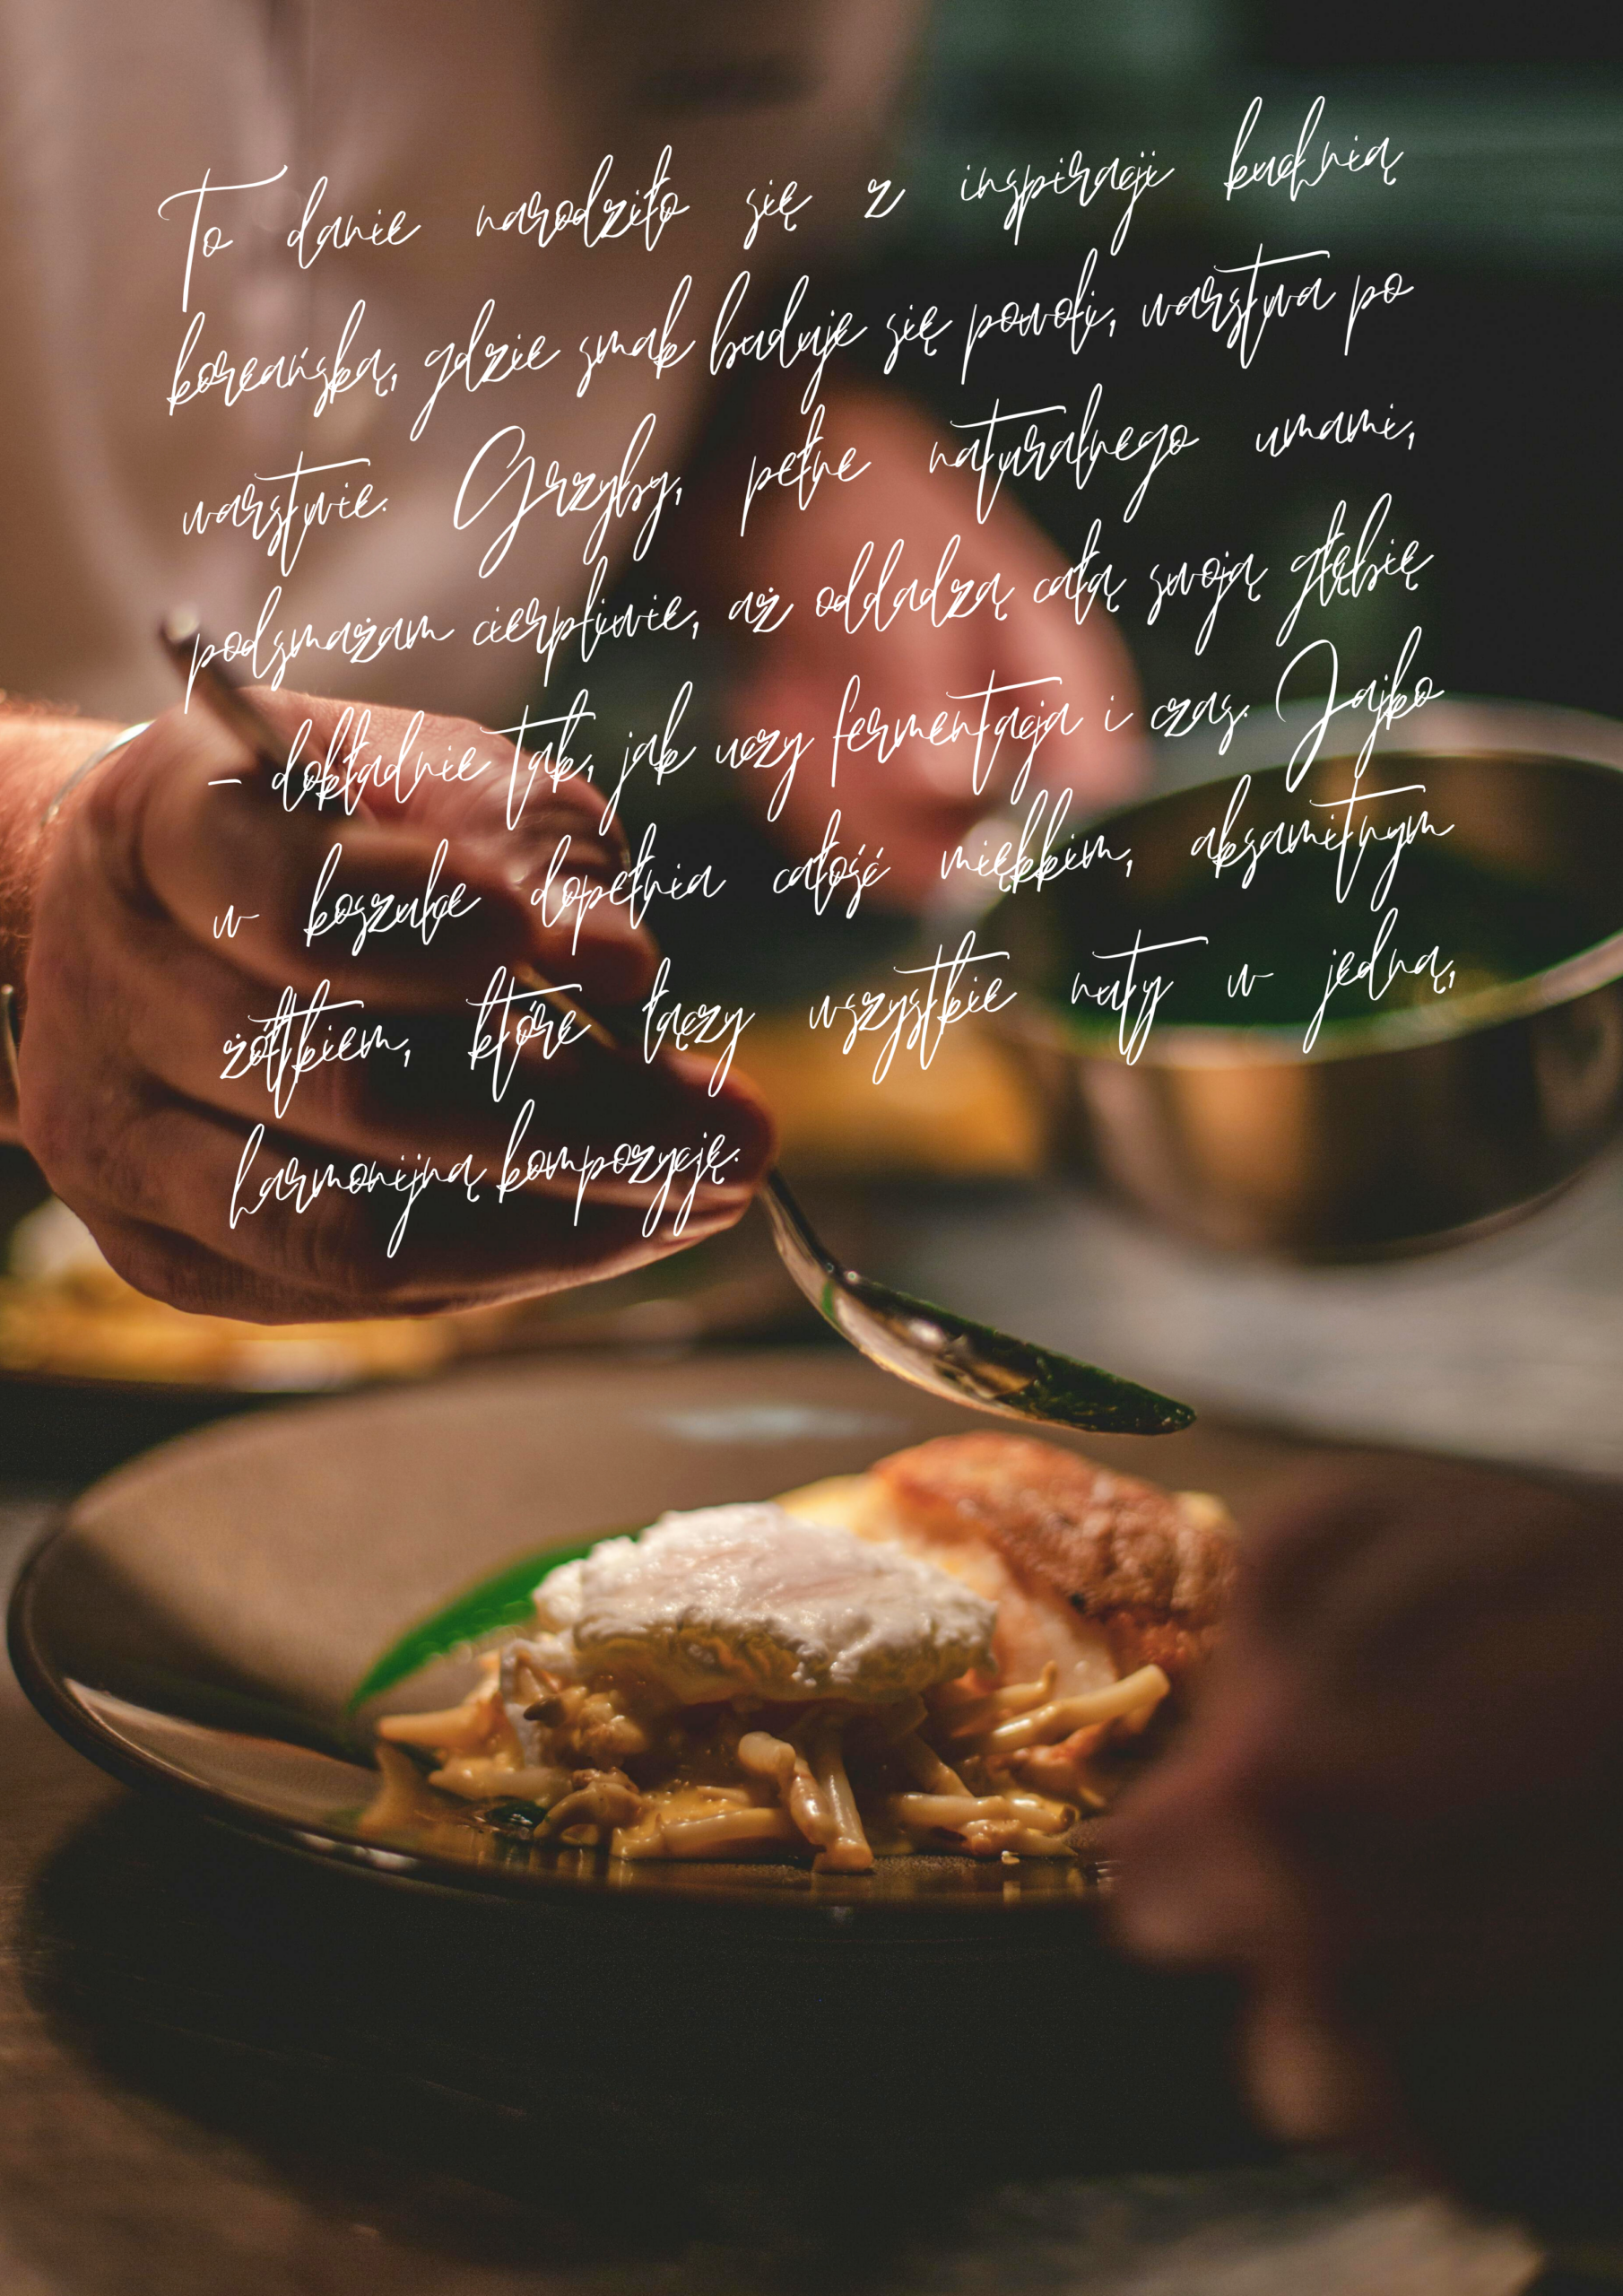 To danie narodziło się z inspiracji kuchnią
koreańską, gdzie smak buduje się powoli, warstwa po
warstwie. Grzyby, pełne naturalnego umami,
podsmażam cierpliwie, aż oddadzą całą swoją głębię
– dokładnie tak, jak uczy fermentacja i czas. Jajko
w koszulce dopełnia całość miękkim, aksamitnym
żółtkiem, które łączy wszystkie nuty w jedną,
harmonijną kompozycję.